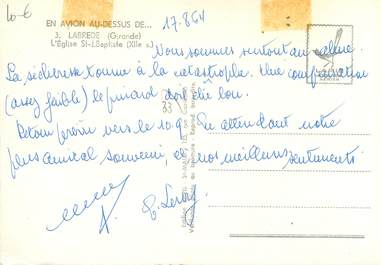 10€
EN AVION AU-DESSUS DE...
17.8.64
3. LABREDE (Gironde)
L'Église St-J.Baptiste (XIIe s.)
Nous sommes surtout au calme.
La sécheresse tourne à la catastrophe. Une compensation
(assez faible) le pinard doit être bon.
Retour prévu vers le 10.9. En attendant notre
plus amical souvenir, et nos meilleurs sentiments